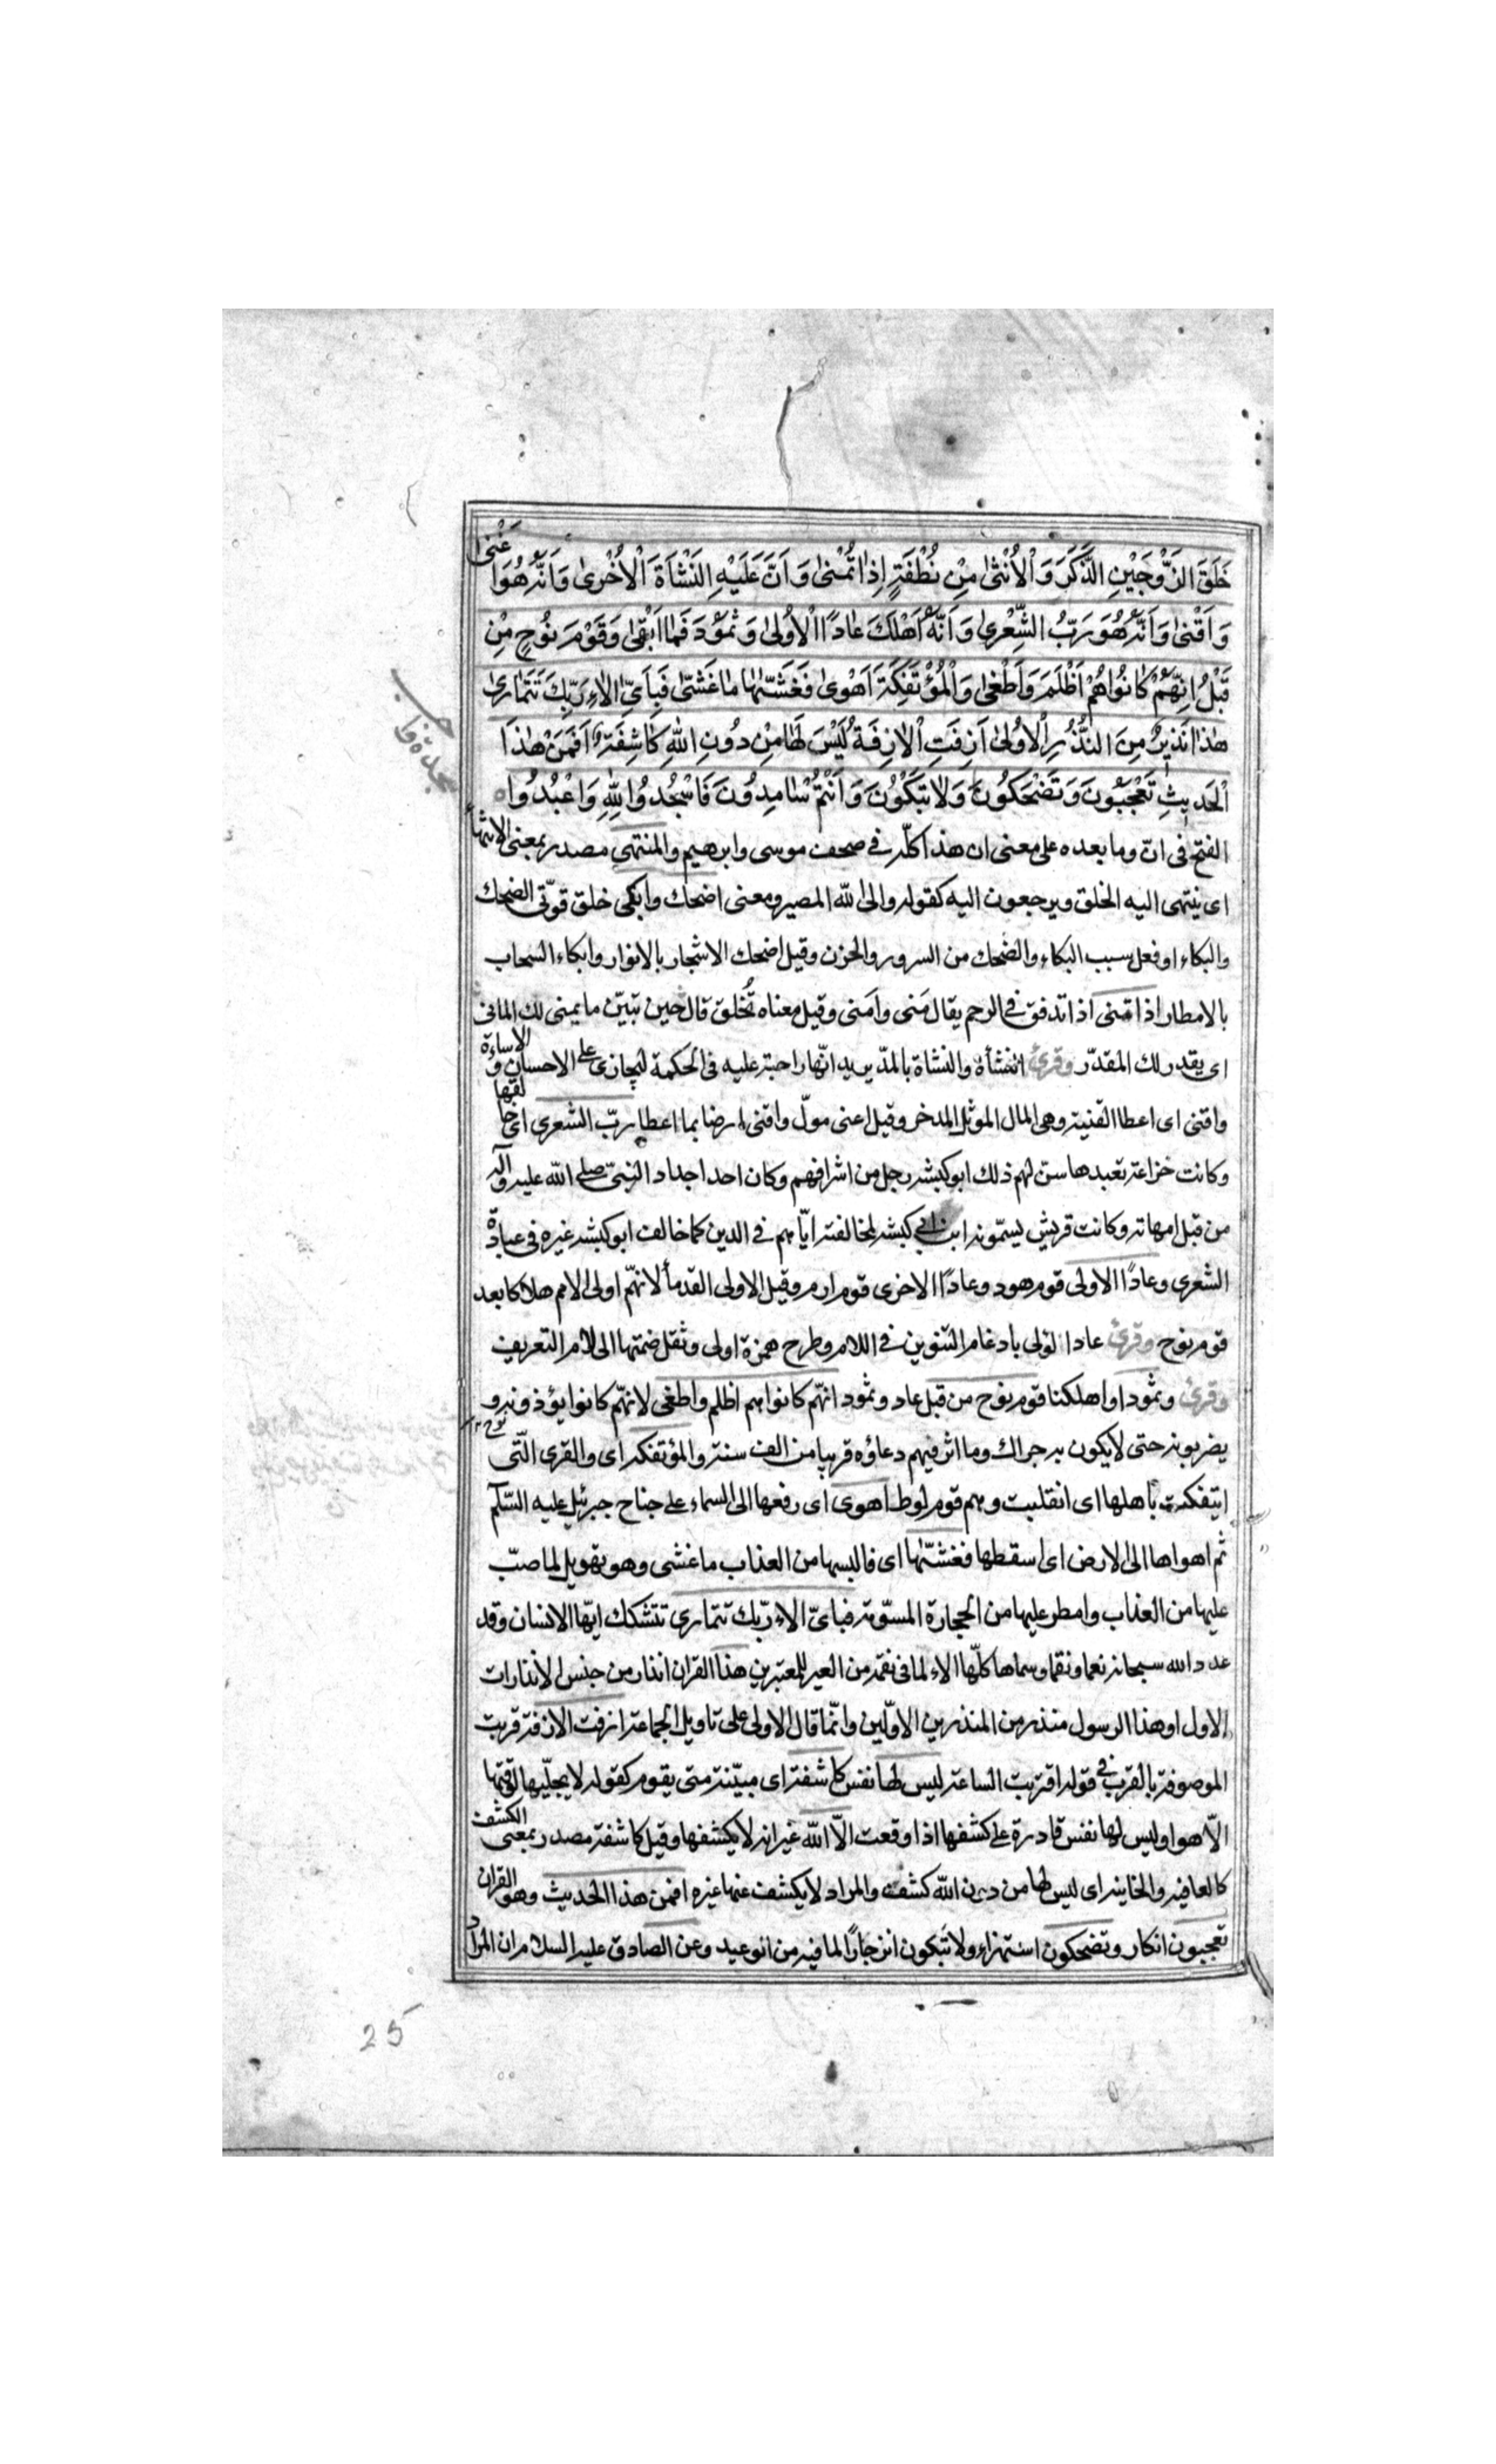 خَلَقَ الزَّوْجَيْنِ الذَّكَرَ وَالْأُنْثٰى مِنْ نُطْفَةٍ إِذَا تُمْنٰى وَأَنَّ عَلَيْهِ النَّشْأَةَ الْأُخْرٰى وَأَنَّهُ هُوَ أَغْنٰى
وَأَقْنٰى وَأَنَّهُ هُوَ رَبُّ الشِّعْرٰى وَأَنَّهُ أَهْلَكَ عَادًا الْأُولٰى وَثَمُودَ فَمَا أَبْقٰى وَقَوْمَ نُوحٍ مِنْ
قَبْلُ إِنَّهُمْ كَانُوا هُمْ أَظْلَمَ وَأَطْغٰى وَالْمُؤْتَفِكَةَ أَهْوٰى فَغَشّٰيهَا مَا غَشّٰى فَبِأَيِّ الَاءِ رَبِّكَ تَتَمَارٰى
هٰذَا نَذِيرٌ مِنَ النُّذُرِ الْأُولٰى أَزِفَتِ الْازِفَةُ لَيْسَ لَهَا مِنْ دُونِ اللهِ كَاشِفَةٌ أَفَمِنْ هٰذَا
الْحَدِيثِ تَعْجَبُونَ وَتَضْحَكُونَ وَلَا تَبْكُونَ وَأَنْتُمْ سَامِدُونَ فَاسْجُدُوا لِلّٰهِ وَاعْبُدُوا
الفتح فى انّ وما بعده على معنى ان هذا كلّه فى صحف موسى وابرهيم والمنتهى مصدر بمعنى الانتهاء
اى ينتهى اليه الخلق ويرجعون اليه كقوله والى الله المصير ومعنى اضحك وابكى خلق قوّتى الضحك
والبكاء او فعل سبب البكاء والضحك من السرور والحزن وقيل اضحك الاشجار بالانوار وابكاء السحاب
بالامطار اذا تمنى اذا تدفق فى الرحم يقال مَنى وامَنى وقيل معناه تُخلق قال حين تبيّن ما يمنى لك المانى
اى يقدر لك المقدّر وقرئ النشأة والنشاة بالمدّ يريد انّها واجبة عليه فى الحكمة ليجازى على الاحسان والاساءة
واقنى اى اعطا القنية وهى المال الموثل المدخر وقيل اغنى موّل واقنى ارضا بما اعطا ربّ الشعرى اى خالقها
وكانت خزاعة تعبدها سنّ لهم ذلك ابو كبشه رجل من اشرافهم وكان احد اجداد النبىّ صلى الله عليه وآله
من قبل امهاته وكانت قريش يسمّونه ابن ابى كبشه لمخالفته ايّاهم فى الدين كما خالف ابو كبشه غيره فى عبادة
الشعرى وعادًا الاولى قوم هود وعادًا الاخرى قوم ارم وقيل الاولى القدمأ لانهّم اولى الامم هلاكا بعد
قوم نوح وقرئ عادا لولى بادغام التنوين فى اللام وطرح همزة اولى ونقل ضمتها الى لام التعريف
وقرئ وثمودا واهلكنا قوم نوح من قبل عاد وثمود انهّم كانوا هم اظلم واطغى لانهّم كانوا يؤذونه و
يضربونه حتى لا يكون به حراك وما اثر فيهم دعاؤه قريبا من الف سنة والمؤتفكه اى والقرى الّتى
ايتفكت باهلها اى انقلبت وهم قوم لوط اهوى اى رفعها الى السماء على جناح جبرئيل عليه السّلام
ثم اهواها الى الارض اى اسقطها فغشّيها اى فالبسها من العذاب ما غشى وهو تهويل لما صبّ
عليها من العذاب وامطر عليها من الحجارة المسوّمة فباىّ الاء ربّك تتمارى تتشكك ايّها الانسان وقد
عدد الله سبحانه نعما ونقما وسماها كلّها الاء لما فى نقمه من العبر للمعتبرين هذا القران انذار من جنس الانذارات
الاول او هذا الرسول منذر من المنذرين الاوّلين وانّما قال الاولى على تاويل الجماعة ازفت الازفة قربت
الموصوفة بالقرب فى قوله اقتربت الساعة ليس لها نفس كاشفة اى مبيّنة متى يقوم كقوله لا يجلّيها لوقتها
الّا هو او ليس لها نفس قادرة على كشفها اذا وقعت الّا الله غير انه لا يكشفها وقيل كاشفة مصدر بمعنى الكشف
كالعافيه والخاينه اى ليس لها من دون الله كشف والمراد لا يكشف عنها غيره افمن هذا الحديث وهو القران
تعجبون انكارا وتضحكون استهزاء ولا تبكون انزجارًا لما فيه من الوعيد وعن الصادق عليه السلام ان المراد
25